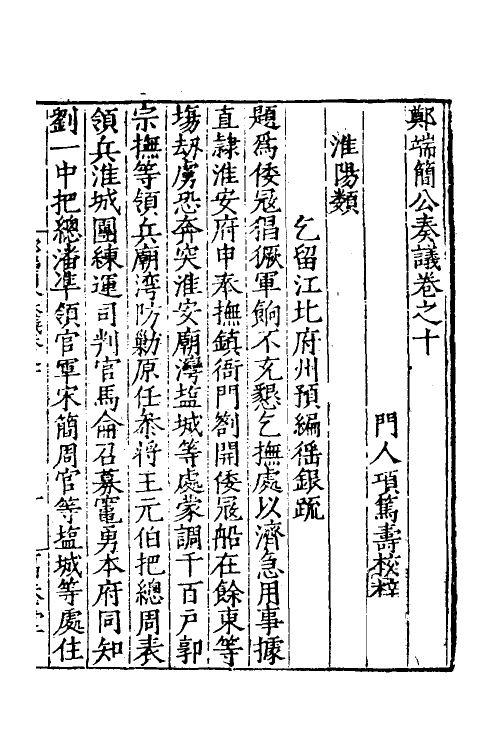 鄭端簡公奏議卷之十
門人項篤壽校梓
淮陽類
乞留江北府州預編徭銀疏
題爲倭冦猖獗軍餉不充懇乞撫處以濟急用事據
直隷淮安府申奉撫鎮衙門劄開倭冦船在餘東等
塲刼虜恐奔突淮安廟灣塩城等處蒙調千百戶郭
宗撫等領兵廟湾防勦原任叅將王元伯把總周表
領兵淮城團練運司判官馬侖召募竈勇本府同知
劉一中把總潘凖領官軍宋簡周官等塩城等處住